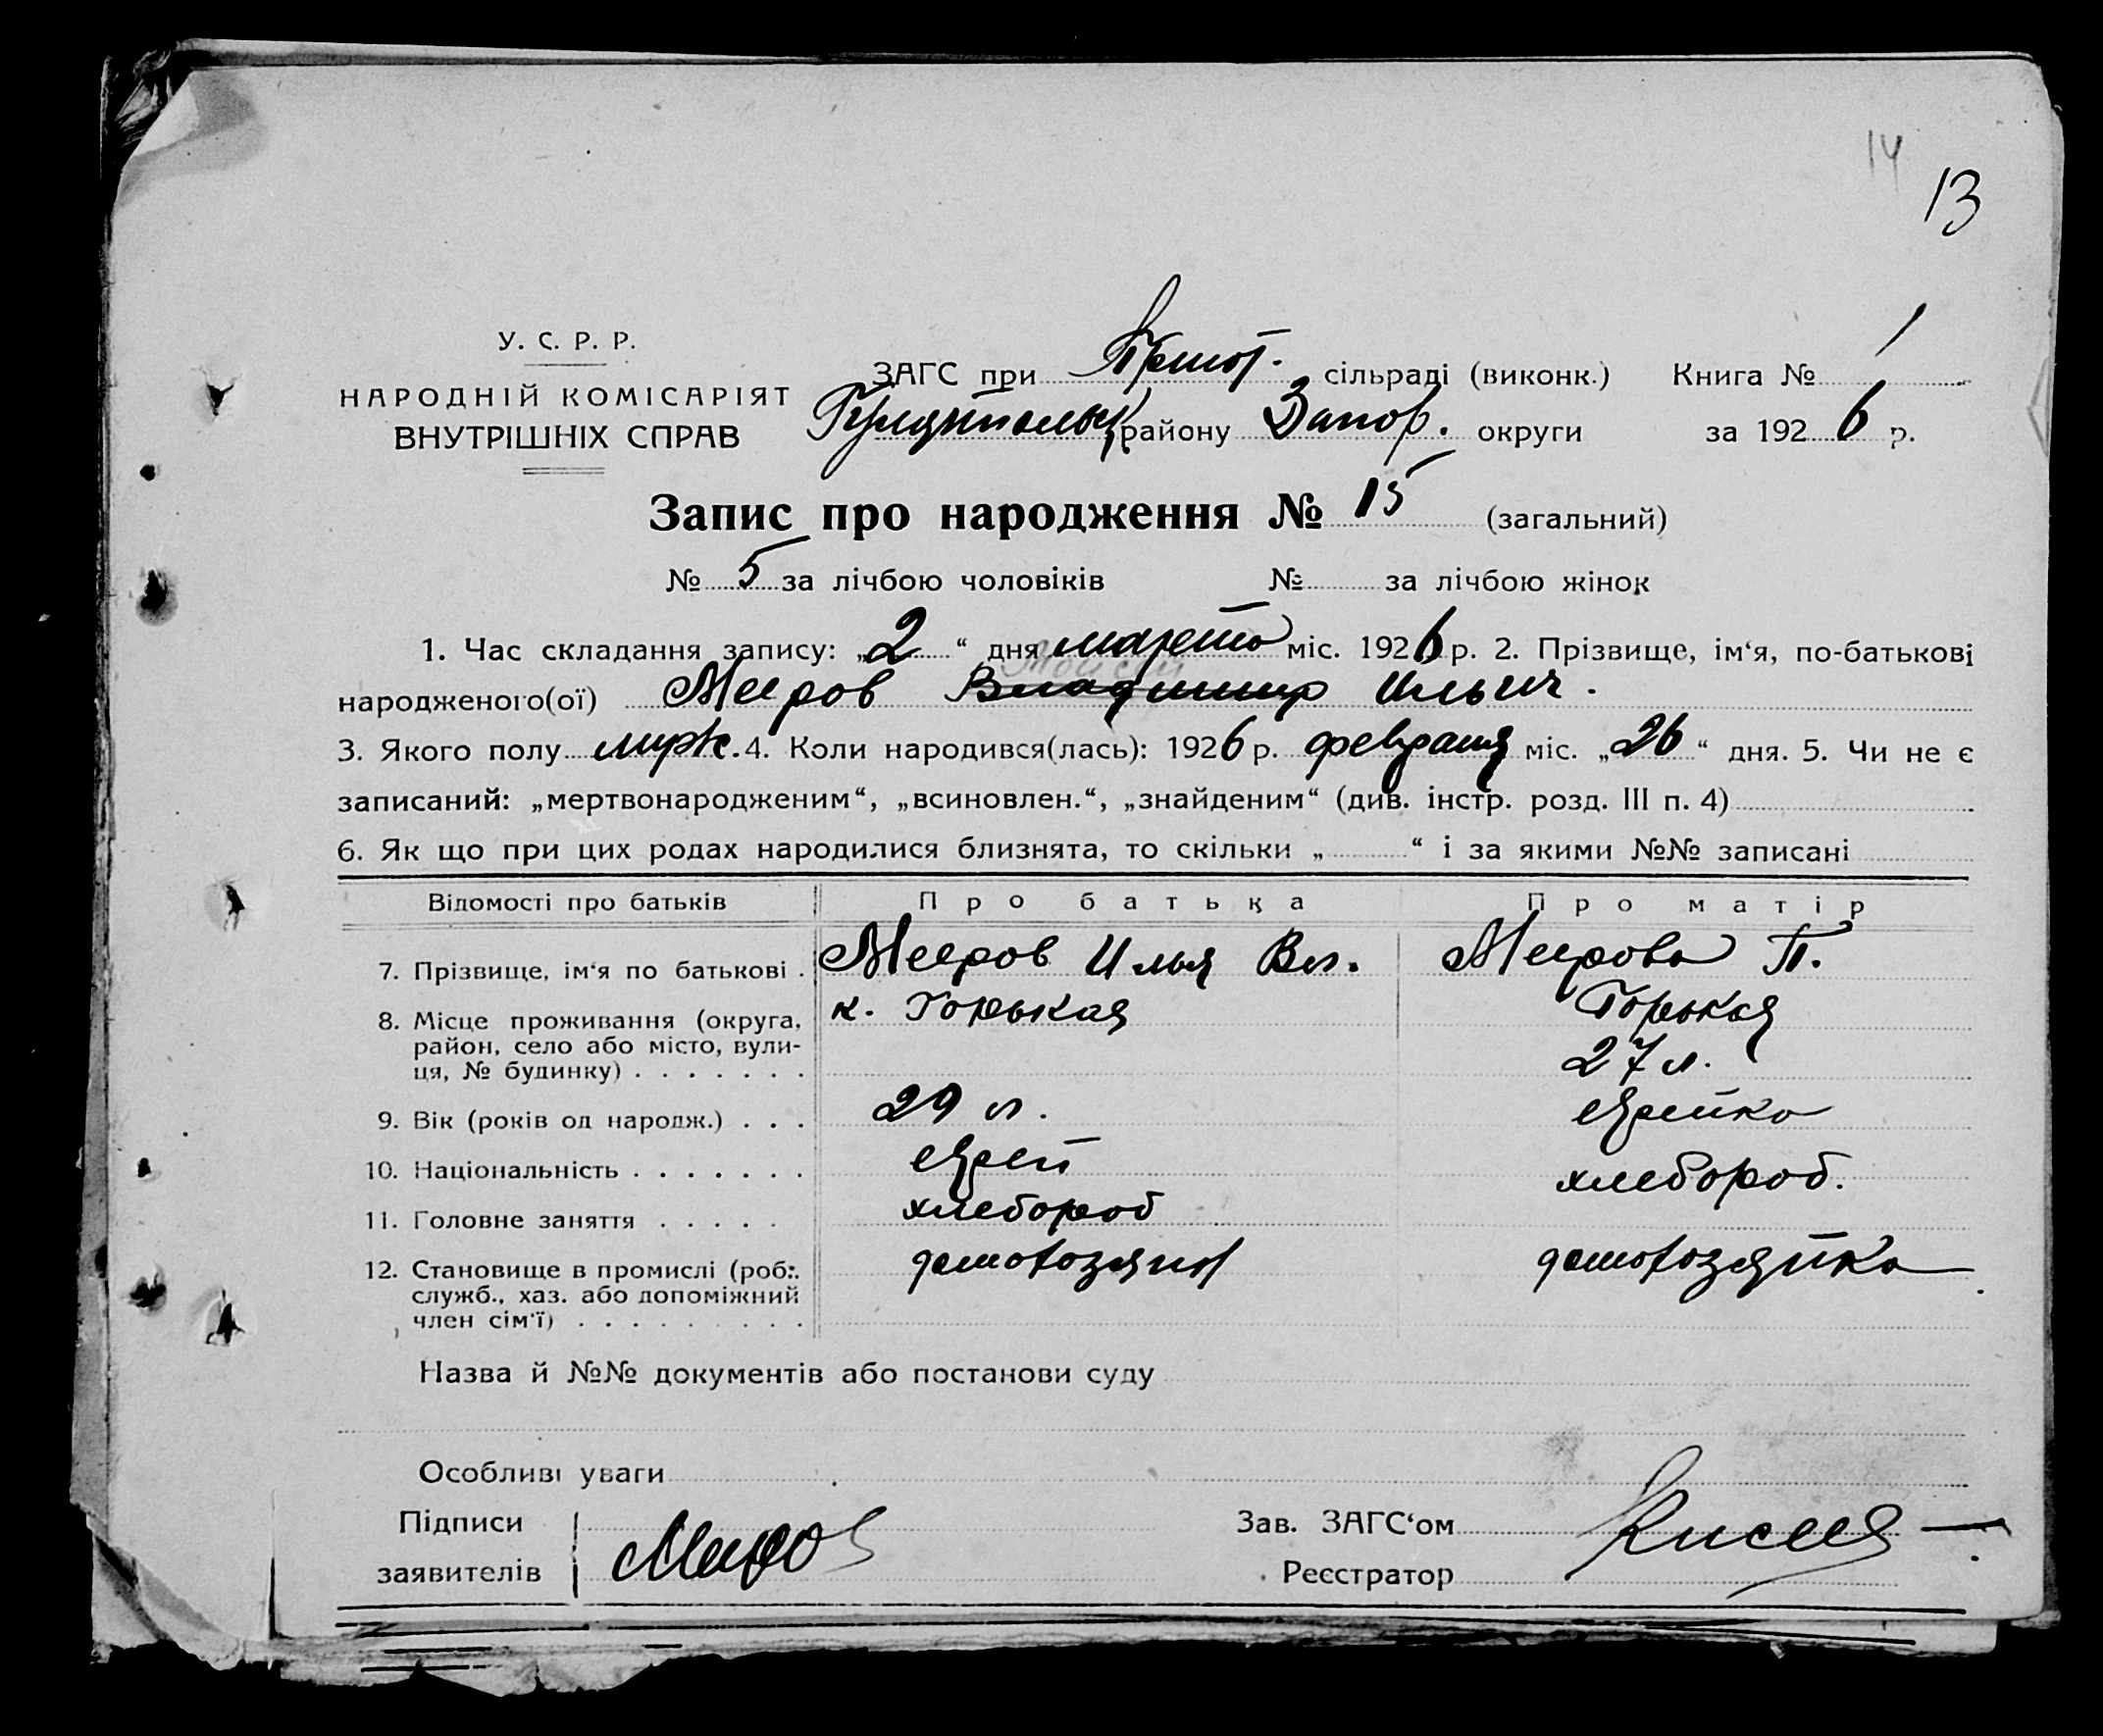 14
13
У. С. Р. Р.
НАРОДНІЙ КОМІСАРІЯТ
ВНУТРІШНІХ СПРАВ
ЗАГС при сільраді (виконк.) Книга № 1
району Запор. округи за 1926 р.
Запис про народження № 15 (загальний)
№ 5 за лічбою чоловіків № за лічбою жінок
1. Час складання запису: „2“ дня марта міс. 1926 р. 2. Прізвище, ім‘я, по-батькові
Мойсей
народженого(ої) Мееров Владимир Ильич.
3. Якого полу муж. 4. Коли народився(лась): 1926 р. февраля міс. „26“ дня. 5. Чи не є
записаний: „мертвонародженим“, „всиновлен.“, „знайденим“ (див. інстр. розд. III п. 4)
6. Як що при цих родах народилися близнята, то скільки „ “ і за якими №№ записані
Відомості про батьків Про батька Про матір
7. Прізвище, ім‘я по батькові . Мееров Илья Вл. Меерова П.
8. Місце проживання (округа, к. Горькая Горькая
район, село або місто, вули-
ця, № будинку) . . . . . . . 27 л.
9. Вік (років од народж.) . . . 29 л. еврейка
10. Національність . . . . . . . еврей хлебороб.
11. Головне заняття . . . . . хлебороб
12. Становище в промислі (роб:. домохозяин домохозяйка
служб., хаз. або допоміжний
член сім‘ї) . . . . . . . . .
Назва й №№ документів або постанови суду
Особливі уваги
Підписи Зав. ЗАГС‘ом
заявителів Мееров Реєстратор